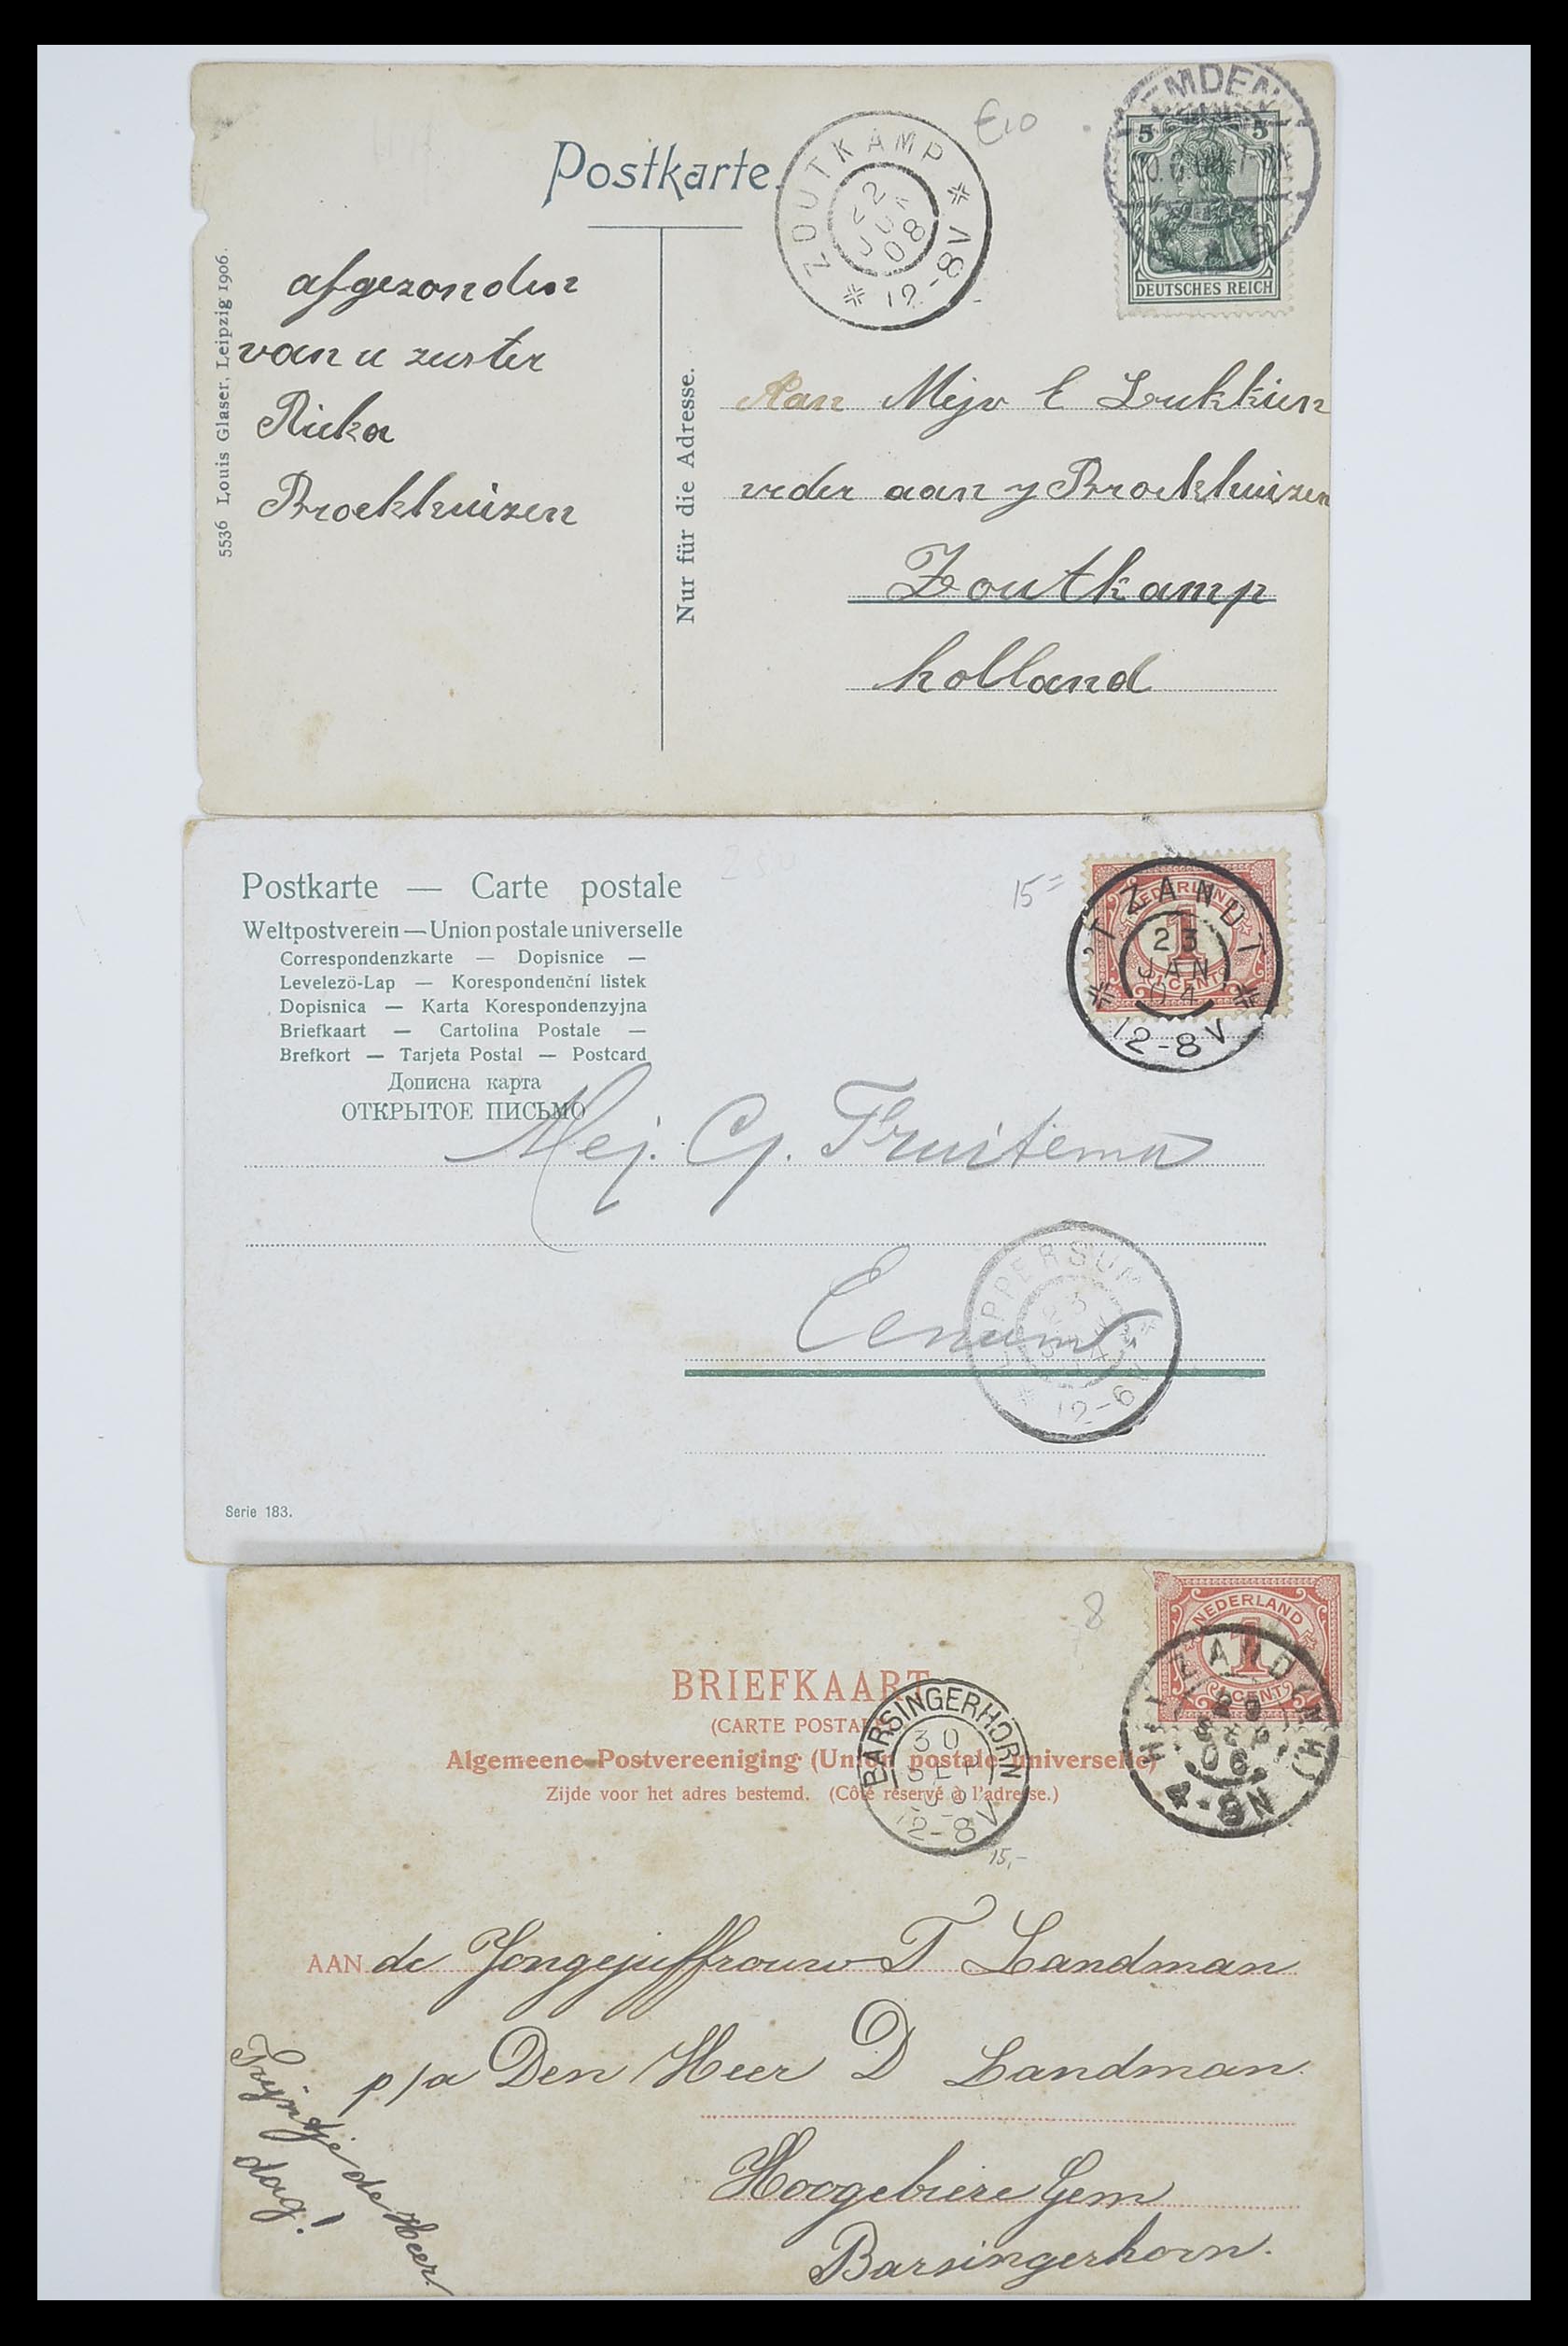 Postkarte.
ZOUTKAMP
22
08
12-8V
€10
EMDEN
5 5
DEUTSCHES REICH
afgezonden
van u zuster
Rieka
Broekhuizen
5536 Louis Glaser, Leipzig 1906.
Nur für die Adresse.
Aan Mejv E Lukkien
veder aan J Broekhuizen
Zoutkamp
holland
Postkarte — Carte postale
Weltpostverein — Union postale universelle
Correspondenzkarte — Dopisnice —
Levelezö-Lap — Korespondenční listek
Dopisnica — Karta Korespondenzyjna
Briefkaart — Cartolina Postale —
Brefkort — Tarjeta Postal — Postcard
Дописна карта
ОТКРЫТОЕ ПИСЬМО
15=
NEDERLAND
1
CENT
'T ZANDT
23
JAN
04
12-8V
Mej. Cj. Fruitema
Eenum
LOPPERSUM
23
12-6
Serie 183.
8
NEDERLAND
1
CENT
20
SEP
06
4-8N
BRIEFKAART
(CARTE POSTALE)
Algemeene Postvereeniging (Union postale universelle)
Zijde voor het adres bestemd. (Côté réservé à l'adresse.)
BARSINGERHORN
30
SEP
12-8V
15,-
AAN de Jongejuffrouw T Landman
p/a Den Heer D Landman.
Hoogebiere Gem
Barsingerhorn.
Trijntje de Heer.
dag!